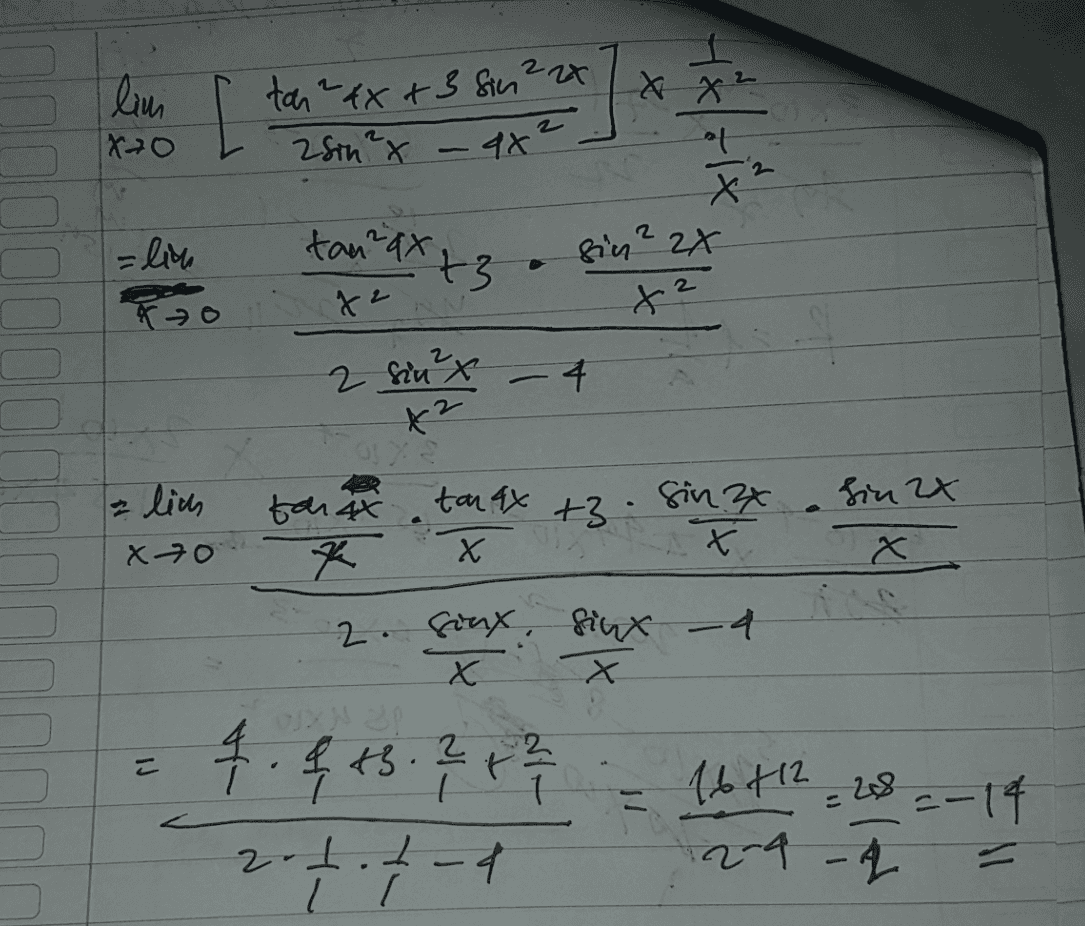 lim x→0 [ (tan²4x + 3 sin²2x) / (2sin²x − 4x²) ] × (1/x²) / (1/x²)
= lim x→0 (tan²4x/x² + 3 · sin²2x/x²) / (2 sin²x/x² − 4)
= lim x→0 (tan4x/x · tan4x/x + 3 · sin2x/x · sin2x/x) / (2 · sinx/x · sinx/x − 4)
= (4/1 · 4/1 + 3 · 2/1 + 2/1) / (2 · 1/1 · 1/1 − 4) = (16+12) / (2−4) = 28/−2 = −14